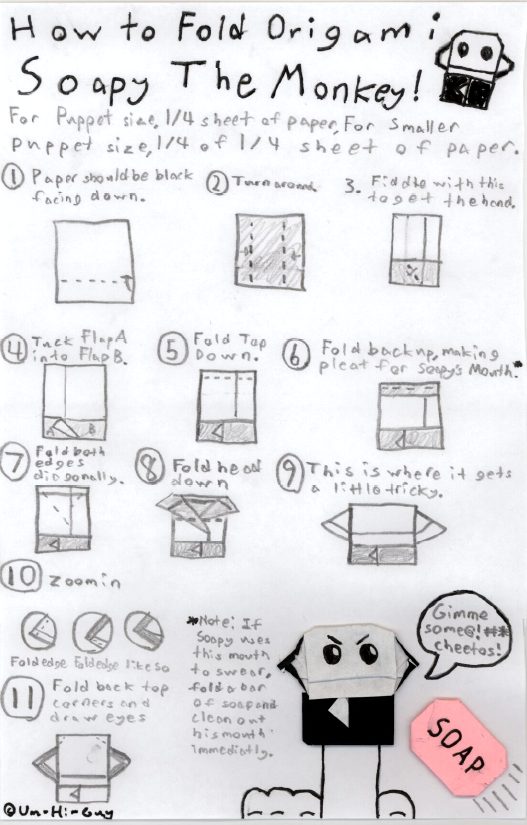 How to Fold Origami
Soapy The Monkey!
For Puppet size, 1/4 sheet of paper, For Smaller
puppet size, 1/4 of 1/4 sheet of paper.
1 Paper should be black
facing down.
2 Turn around.
3. Fiddle with this
to get the hand.
4 Tuck Flap A
into Flap B.
A B
5 Fold Top
Down.
6 Fold back up, making
pleat for Soapy's Mouth.*
7 Fold both
edges
diagonally.
8 Fold head
down
9 This is where it gets
a little tricky.
10 Zoom in
Fold edge Fold edge like so
11 Fold back top
corners and
draw eyes
*Note: If
Soapy uses
this mouth
to swear,
fold a bar
of soap and
clean out
his mouth
immediatly.
Gimme
some@!##*
cheetos!
SOAP
©Um-Hi-Guy